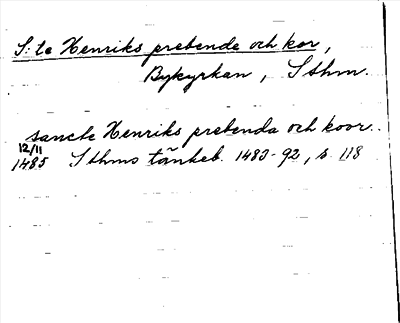 S:te Henriks prebende och kor,
Bykyrkan, Sthm.
sancte Henriks prebenda och koor..
12/11
1485 Sthms tänkeb. 1483-92, s. 118